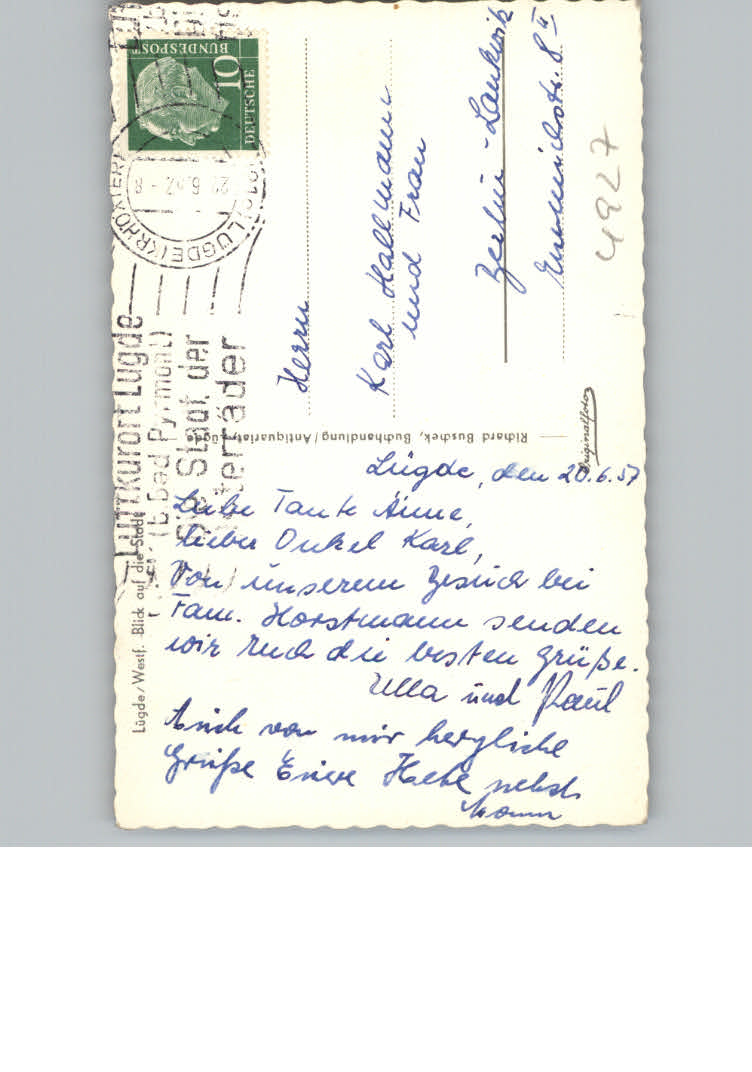 Lügde, den 20.6.57
Liebe Tante Änne,
lieber Onkel Karl,
Von unserem Besuch bei
Fam. Horstmann senden
wir Euch die besten Grüße.
Ulla und Paul
Auch von mir herzliche
Grüße Euere
nebst
Mann
Herrn
Karl Hallmann
und Frau
Berlin-Lankwitz
8 II
4927
Lügde/Westf. Blick auf die Stadt
Richard Buschek, Buchhandlung/Antiquariat, Lügde
Originalfoto
DEUTSCHE
BUNDESPOST
10
Luftkurort Lügde
(b. Bad Pyrmont)
Die Stadt der
Osterräder